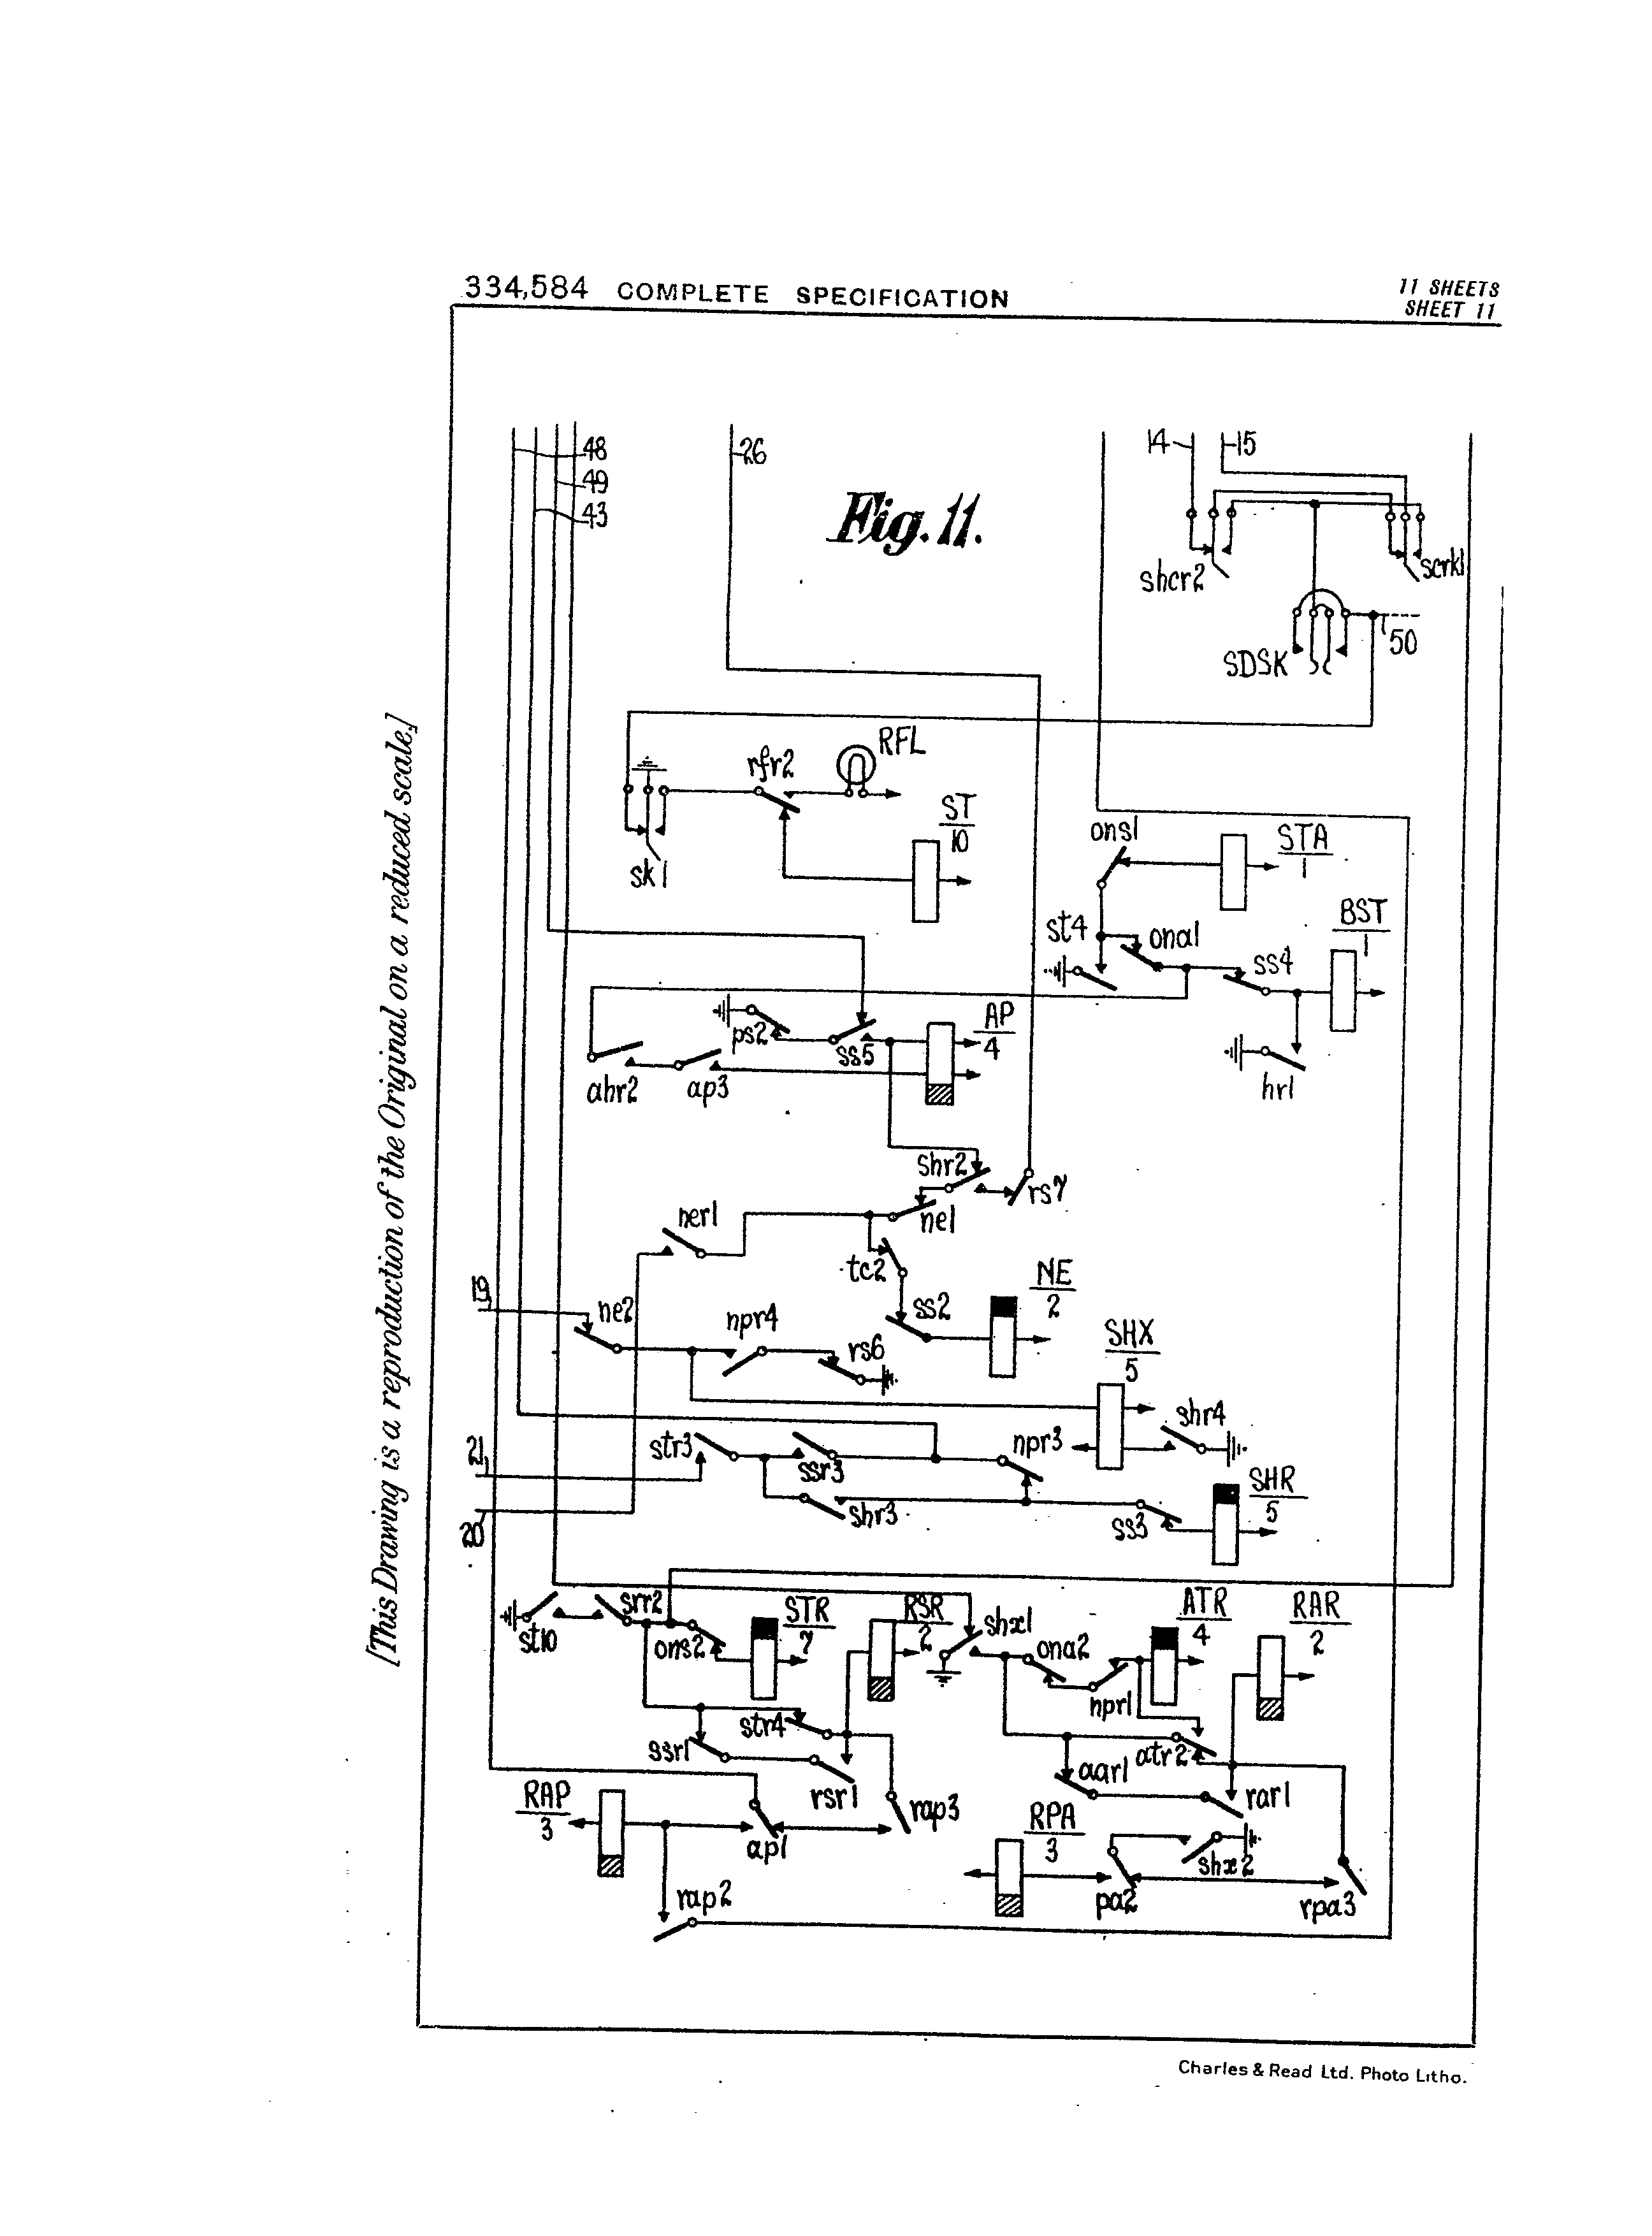 334,584 COMPLETE SPECIFICATION
11 SHEETS
SHEET 11
[This Drawing is a reproduction of the Original on a reduced scale.]
48
49
43
26
14
15
Fig. 11.
shcr2
scrk1
SDSK
50
RFL
rfr2
sk1
ST
10
ons1
STA
1
st4
ona1
ss4
BST
1
hr1
ps2
ss5
AP
4
ahr2
ap3
shr2
rs7
ne1
ner1
tc2
NE
2
19
ne2
npr4
ss2
rs6
SHX
5
shr4
21
str3
ssr3
npr3
shr3
SHR
5
20
ss3
st10
srr2
ons2
STR
7
RSR
2
shx1
ona2
ATR
4
RAR
2
npr1
str4
ssr1
atr2
aar1
rsr1
rar1
RAP
3
ap1
rap3
RPA
3
shx2
pa2
rpa3
rap2
Charles & Read Ltd. Photo Litho.